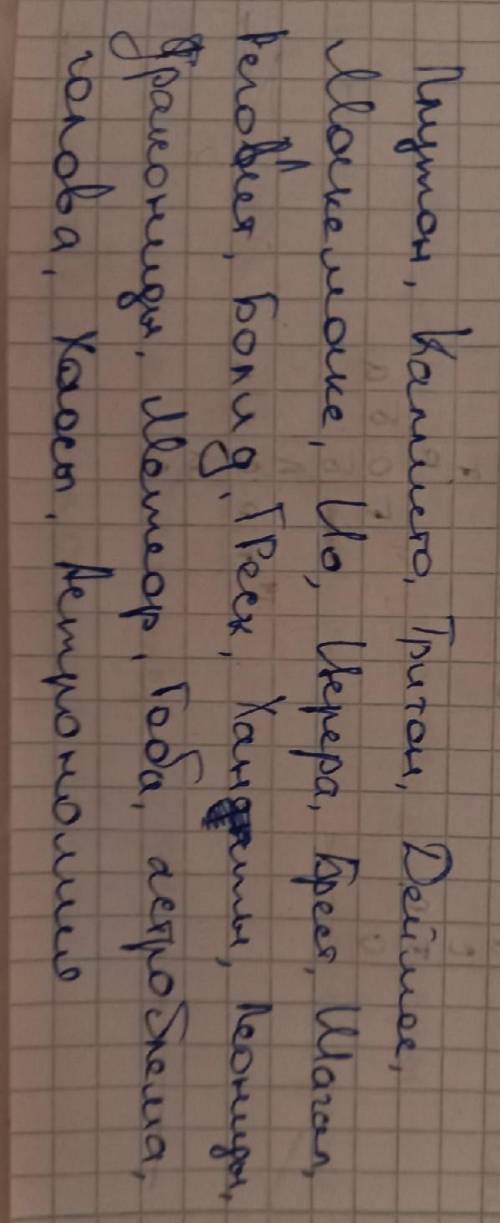 Плутон, Каллисто, Тритон, Деймос,
Макемаке, Ио, Церера, Брест, Шагал,
Реголит, Болид, Греск, Ханты, Леониды,
Дракониды, Метеор, Гоба, астроблема,
голова, Хаосы, Астрономия